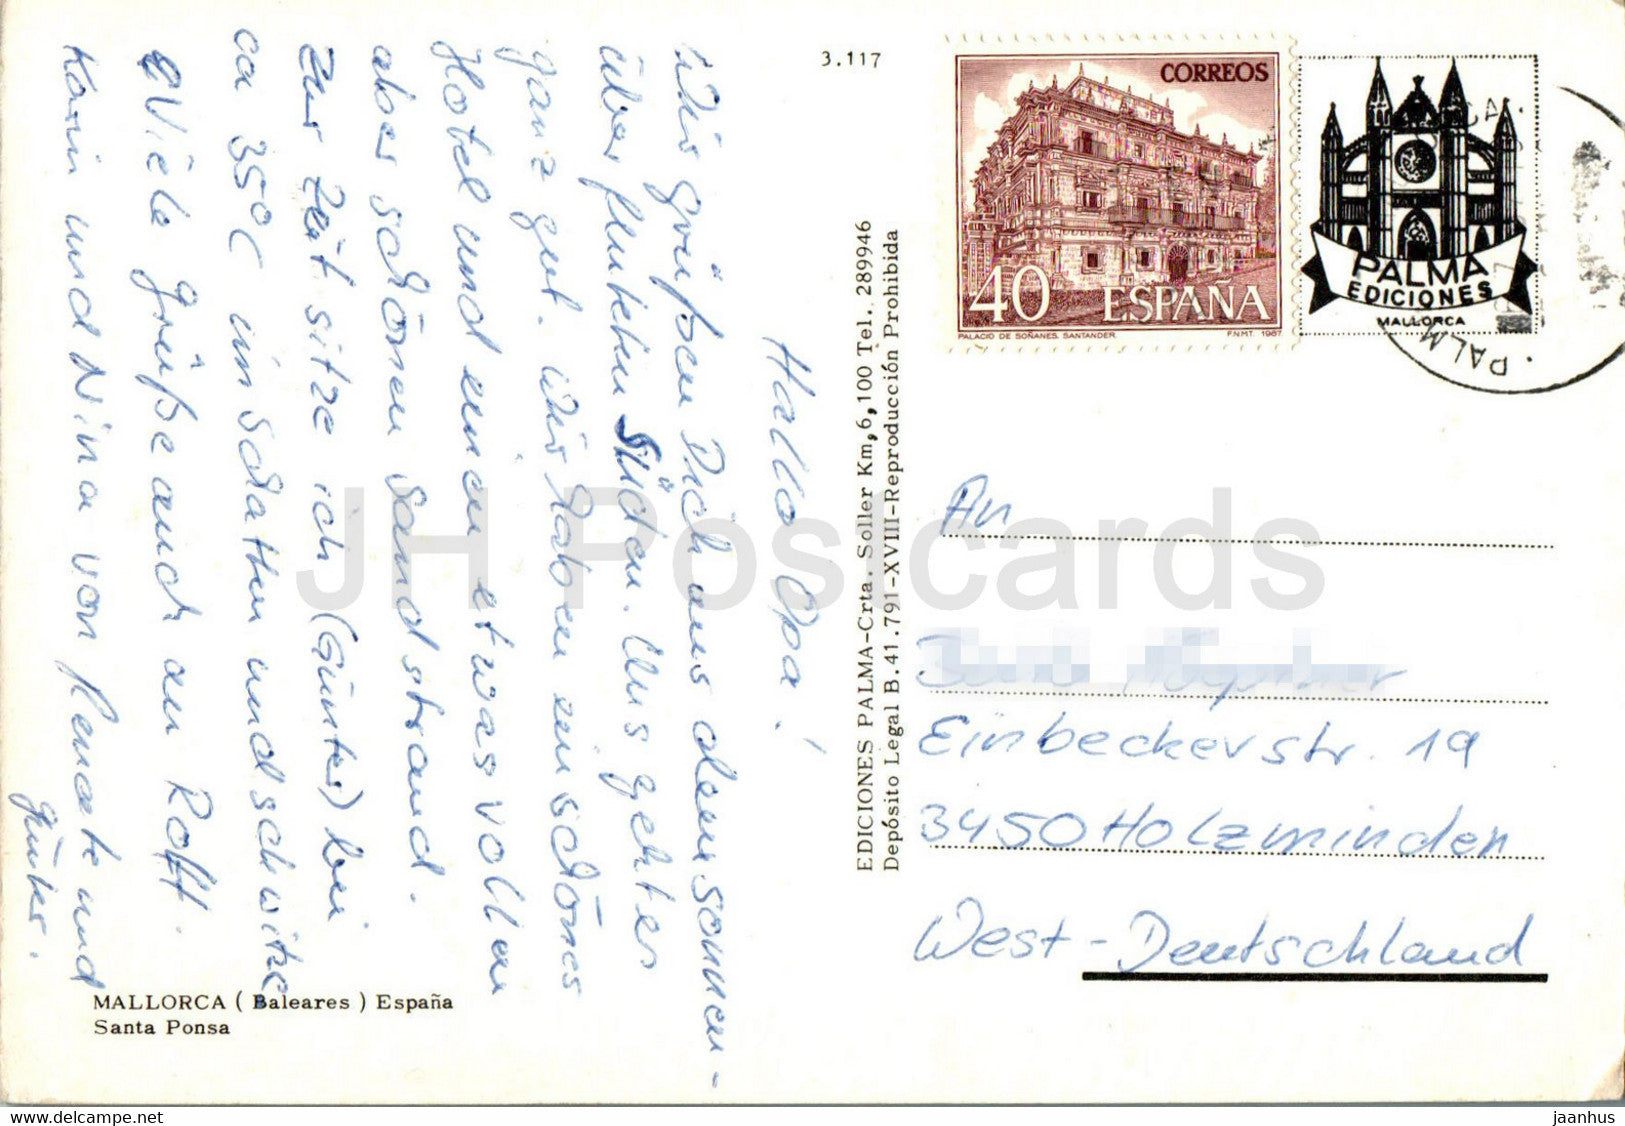 Hallo Opa!
Wir grüßen Dich aus dem sonnen-
überfluteten Süden. Uns geht es
ganz gut. Wir haben ein schönes
Hotel und einen etwas vollen
aber schönen Sandstrand.
Zur Zeit sitze ich (Günter) bei
ca 35°C im Schatten und schwitze
Viele Grüße auch an Rolf.
Karin und Nina von Renate und
Günter.
MALLORCA ( Baleares ) España
Santa Ponsa
3.117
EDICIONES PALMA-Crta. Soller Km, 6,100 Tel. 289946
Depósito Legal B. 41.791-XVIII-Reproducción Prohibida
CORREOS
40 ESPAÑA
PALACIO DE SOÑANES. SANTANDER. F.N.M.T. 1987
PALMA
EDICIONES
MALLORCA
An
Einbeckerstr. 19
3450 Holzminden
West-Deutschland
JH Postcards
www.delcampe.net
jaanhus